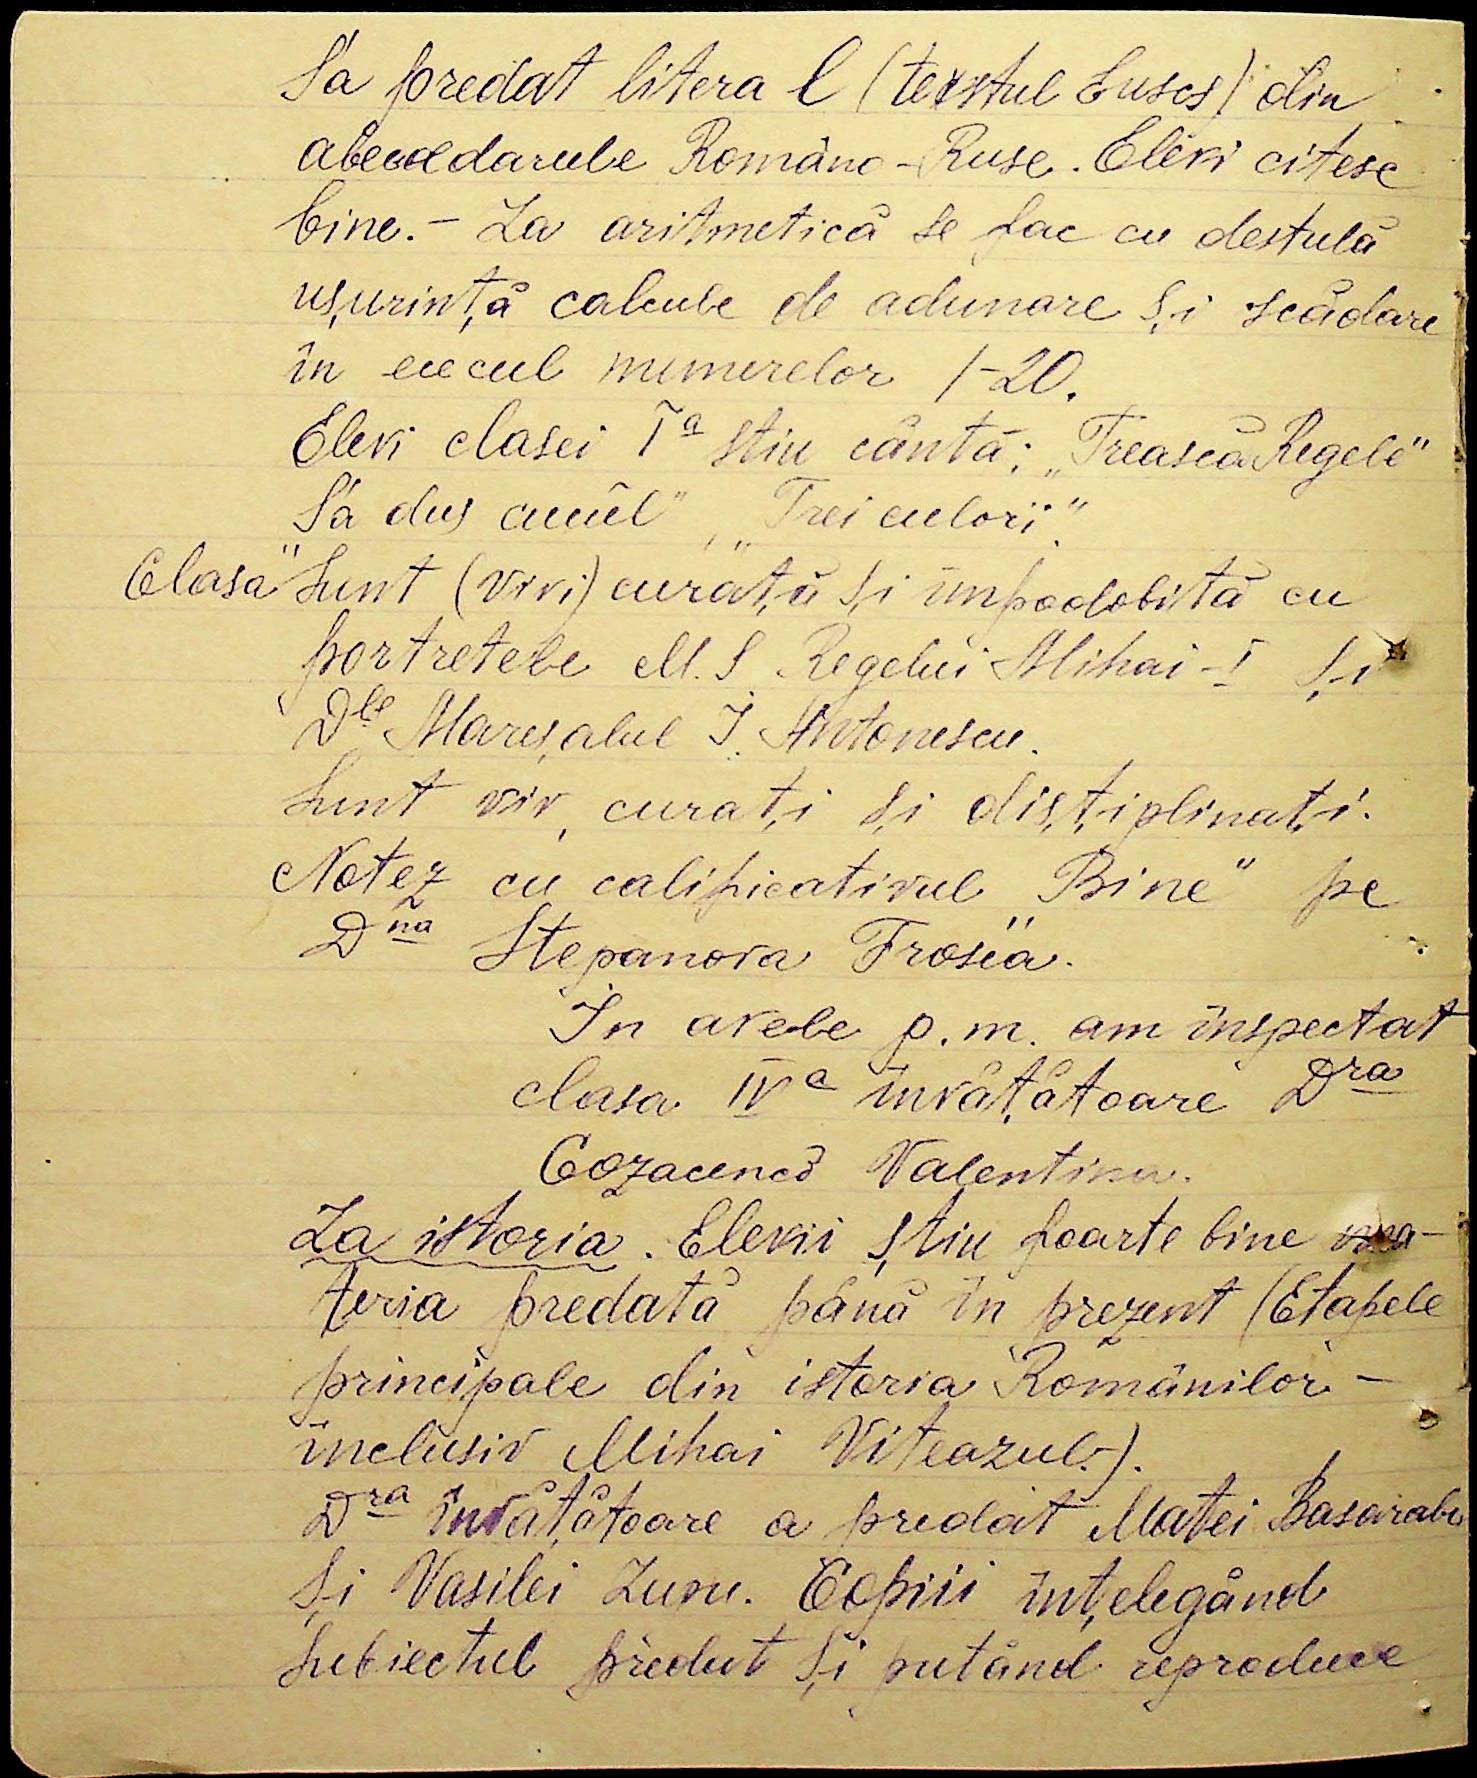 S'a predat litera l (textul Suscs) din
abecedarule Româno-Ruse. Elevi citesc
bine.- La aritmetică se fac cu destulă
ușurință calcule de adunare și scădare
în cecul numerelor 1-20.
Elevi clasei Iᵃ știu cânta: „Trească Regele"
S'a dus cucul", „Trei culori".
Clasa" Sunt (vivi) curată și împodobită cu
portretele M. S Regelui Mihai-I și
Dˡᵉ Mareșalul I. Antonescu.
Sunt viv, curați și disțiplinați.
Notez cu calificativul Bine" pe
Dⁿᵃ Stepanova Frosia.
In orele p.m. am inspectat
clasa IVᵃ învățătoare Dʳᵃ
Cozacenco Valentina.
La istoria. Elevii știu foarte bine ma-
teria predată până în prezent (Etapele
principale din istoria Românilor -
inclusiv Mihai Viteazul.).
Dʳᵃ învățătoare a predat Matei Basarabu
și Vasilei Lupu. Copiii ințelegând
subiectul predat și putând reproduce